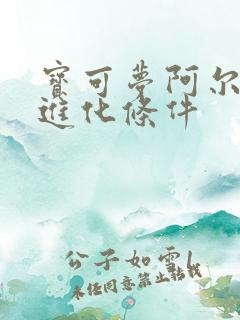 寶可夢阿尔
進化條件
公子如雪
未经同意禁止转载